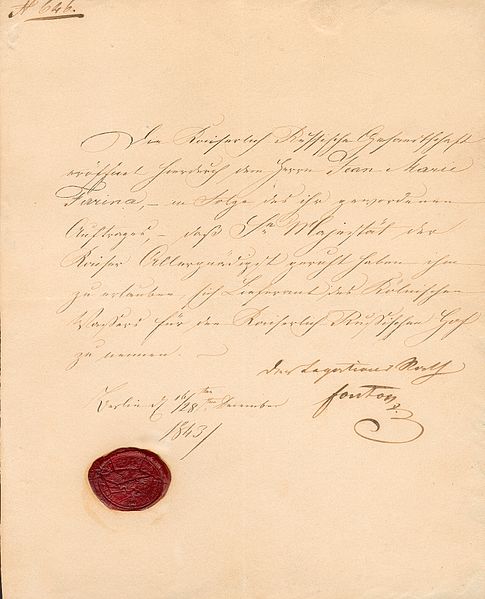 № 646.
Die Kaiserlich Russische Gesandtschaft
eröffnet hierdurch dem Herrn Jean Marie
Farina, – in Folge des ihr gewordenen
Auftrages, – daß Sr Majestät der
Kaiser Allergnädigst geruht haben ihm
zu erlauben, sich Lieferant des Kölnischen
Wassers für den Kaiserlich Russischen Hof
zu nennen. –
Der Legations Rath
fonton
Berlin d. 16/28 ten December
1843